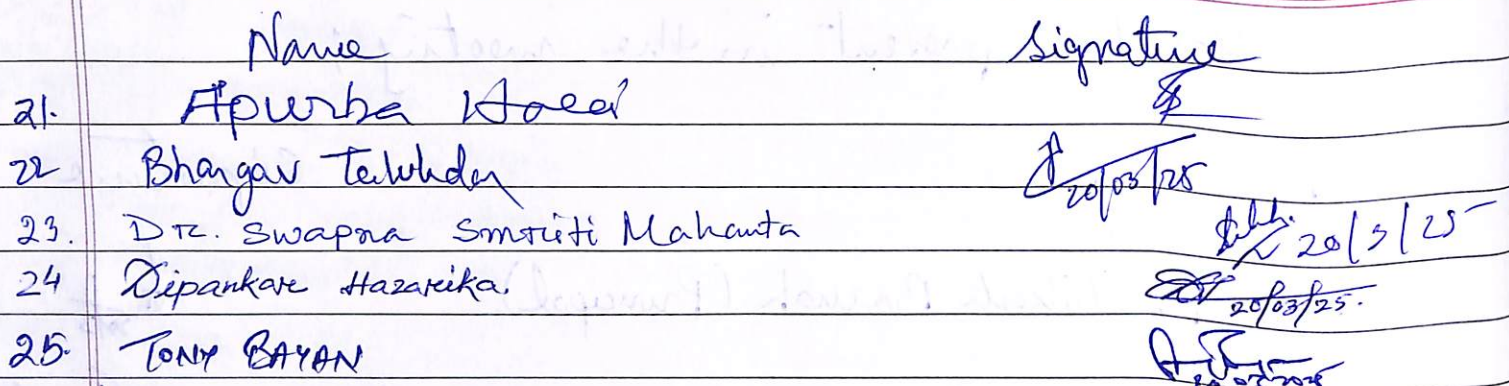 Name Signature
21. Apurba
22 Bhargav Talukdar 20/03/25
23. Dr. Swapna Smriti Mahanta 20/3/25
24 Dipankar Hazarika. 20/03/25.
25. TONY BAYAN